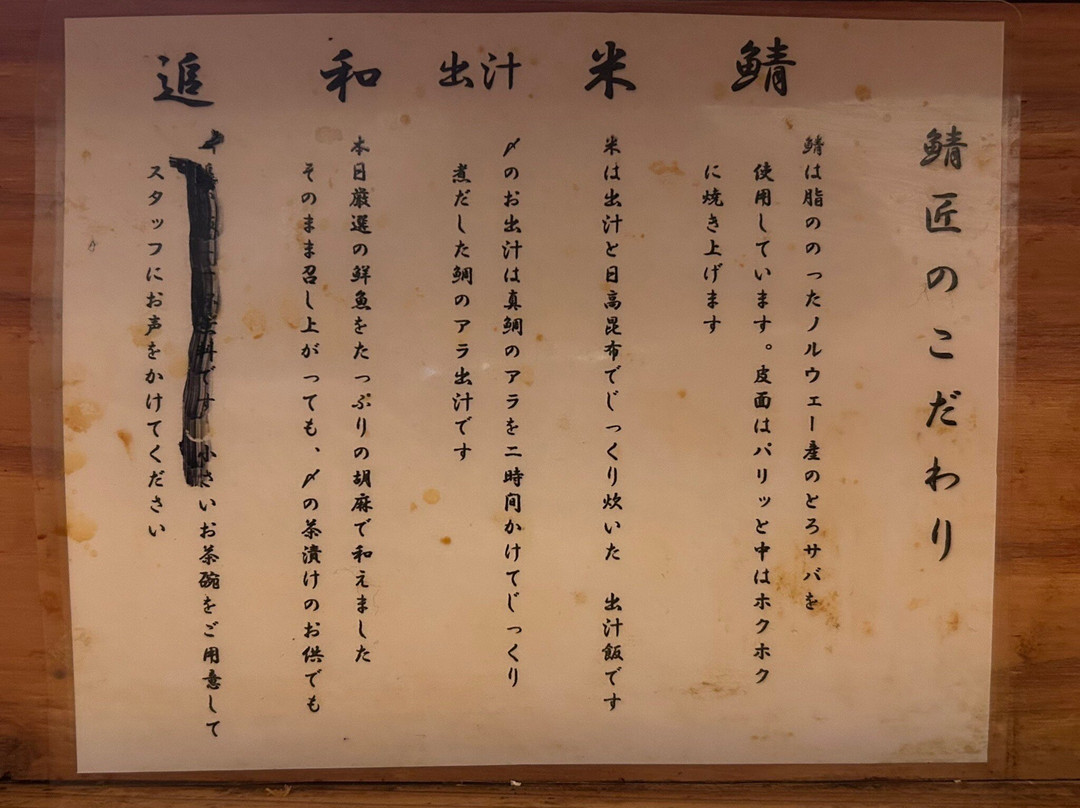 鯖匠のこだわり
鯖
鯖は脂ののったノルウェー産のとろサバを
使用しています。皮面はパリッと中はホクホク
に焼き上げます
米
米は出汁と日高昆布でじっくり炊いた 出汁飯です
出汁
〆のお出汁は真鯛のアラを二時间かけてじっくり
煮だした鯛のアラ出汁です
和
本日厳選の鮮魚をたっぷりの胡麻で和えました
そのまま召し上がっても、〆の茶漬けのお供でも
追
小さいお茶碗をご用意して
スタッフにお声をかけてください